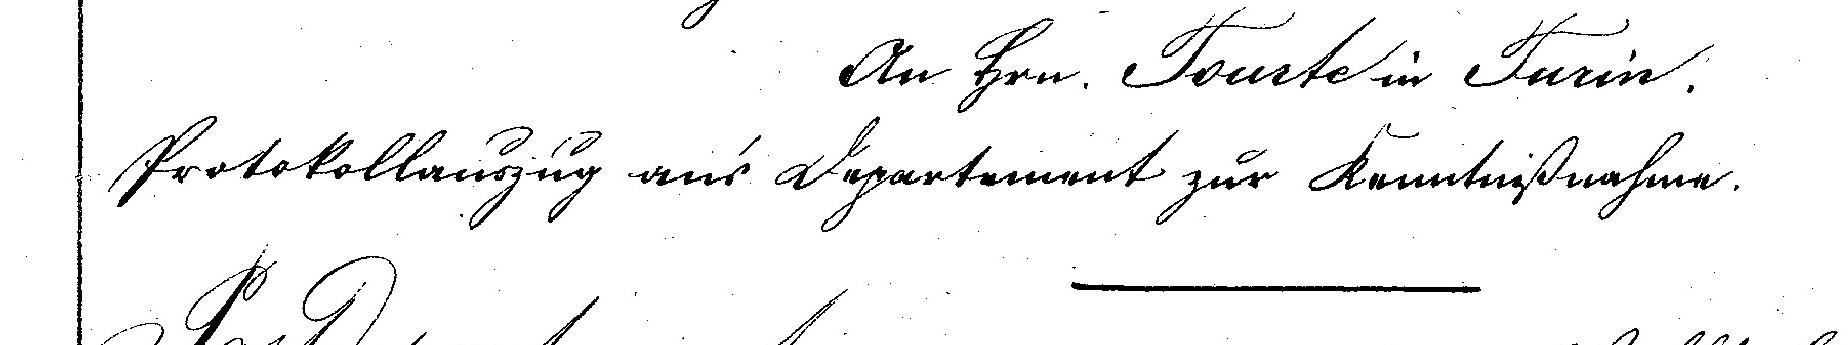 An Hrn. Tourte in Turin.
Protokollauszug an's Departement zur Kenntnißnahme.